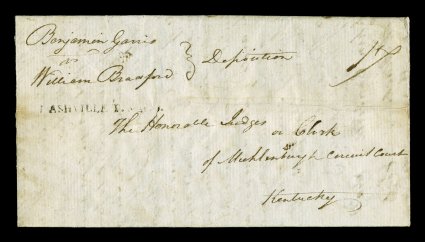 Benjamin Garris
vs
William Bradford } Deposition
17
NASHVILLE T.
The Honorable Judges or Clerk
of Muhlenburgh Circuit Court
Kentucky